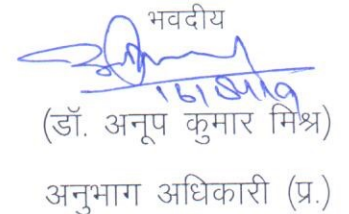 भवदीय
(डॉ. अनूप कुमार मिश्र)
अनुभाग अधिकारी (प्र.)